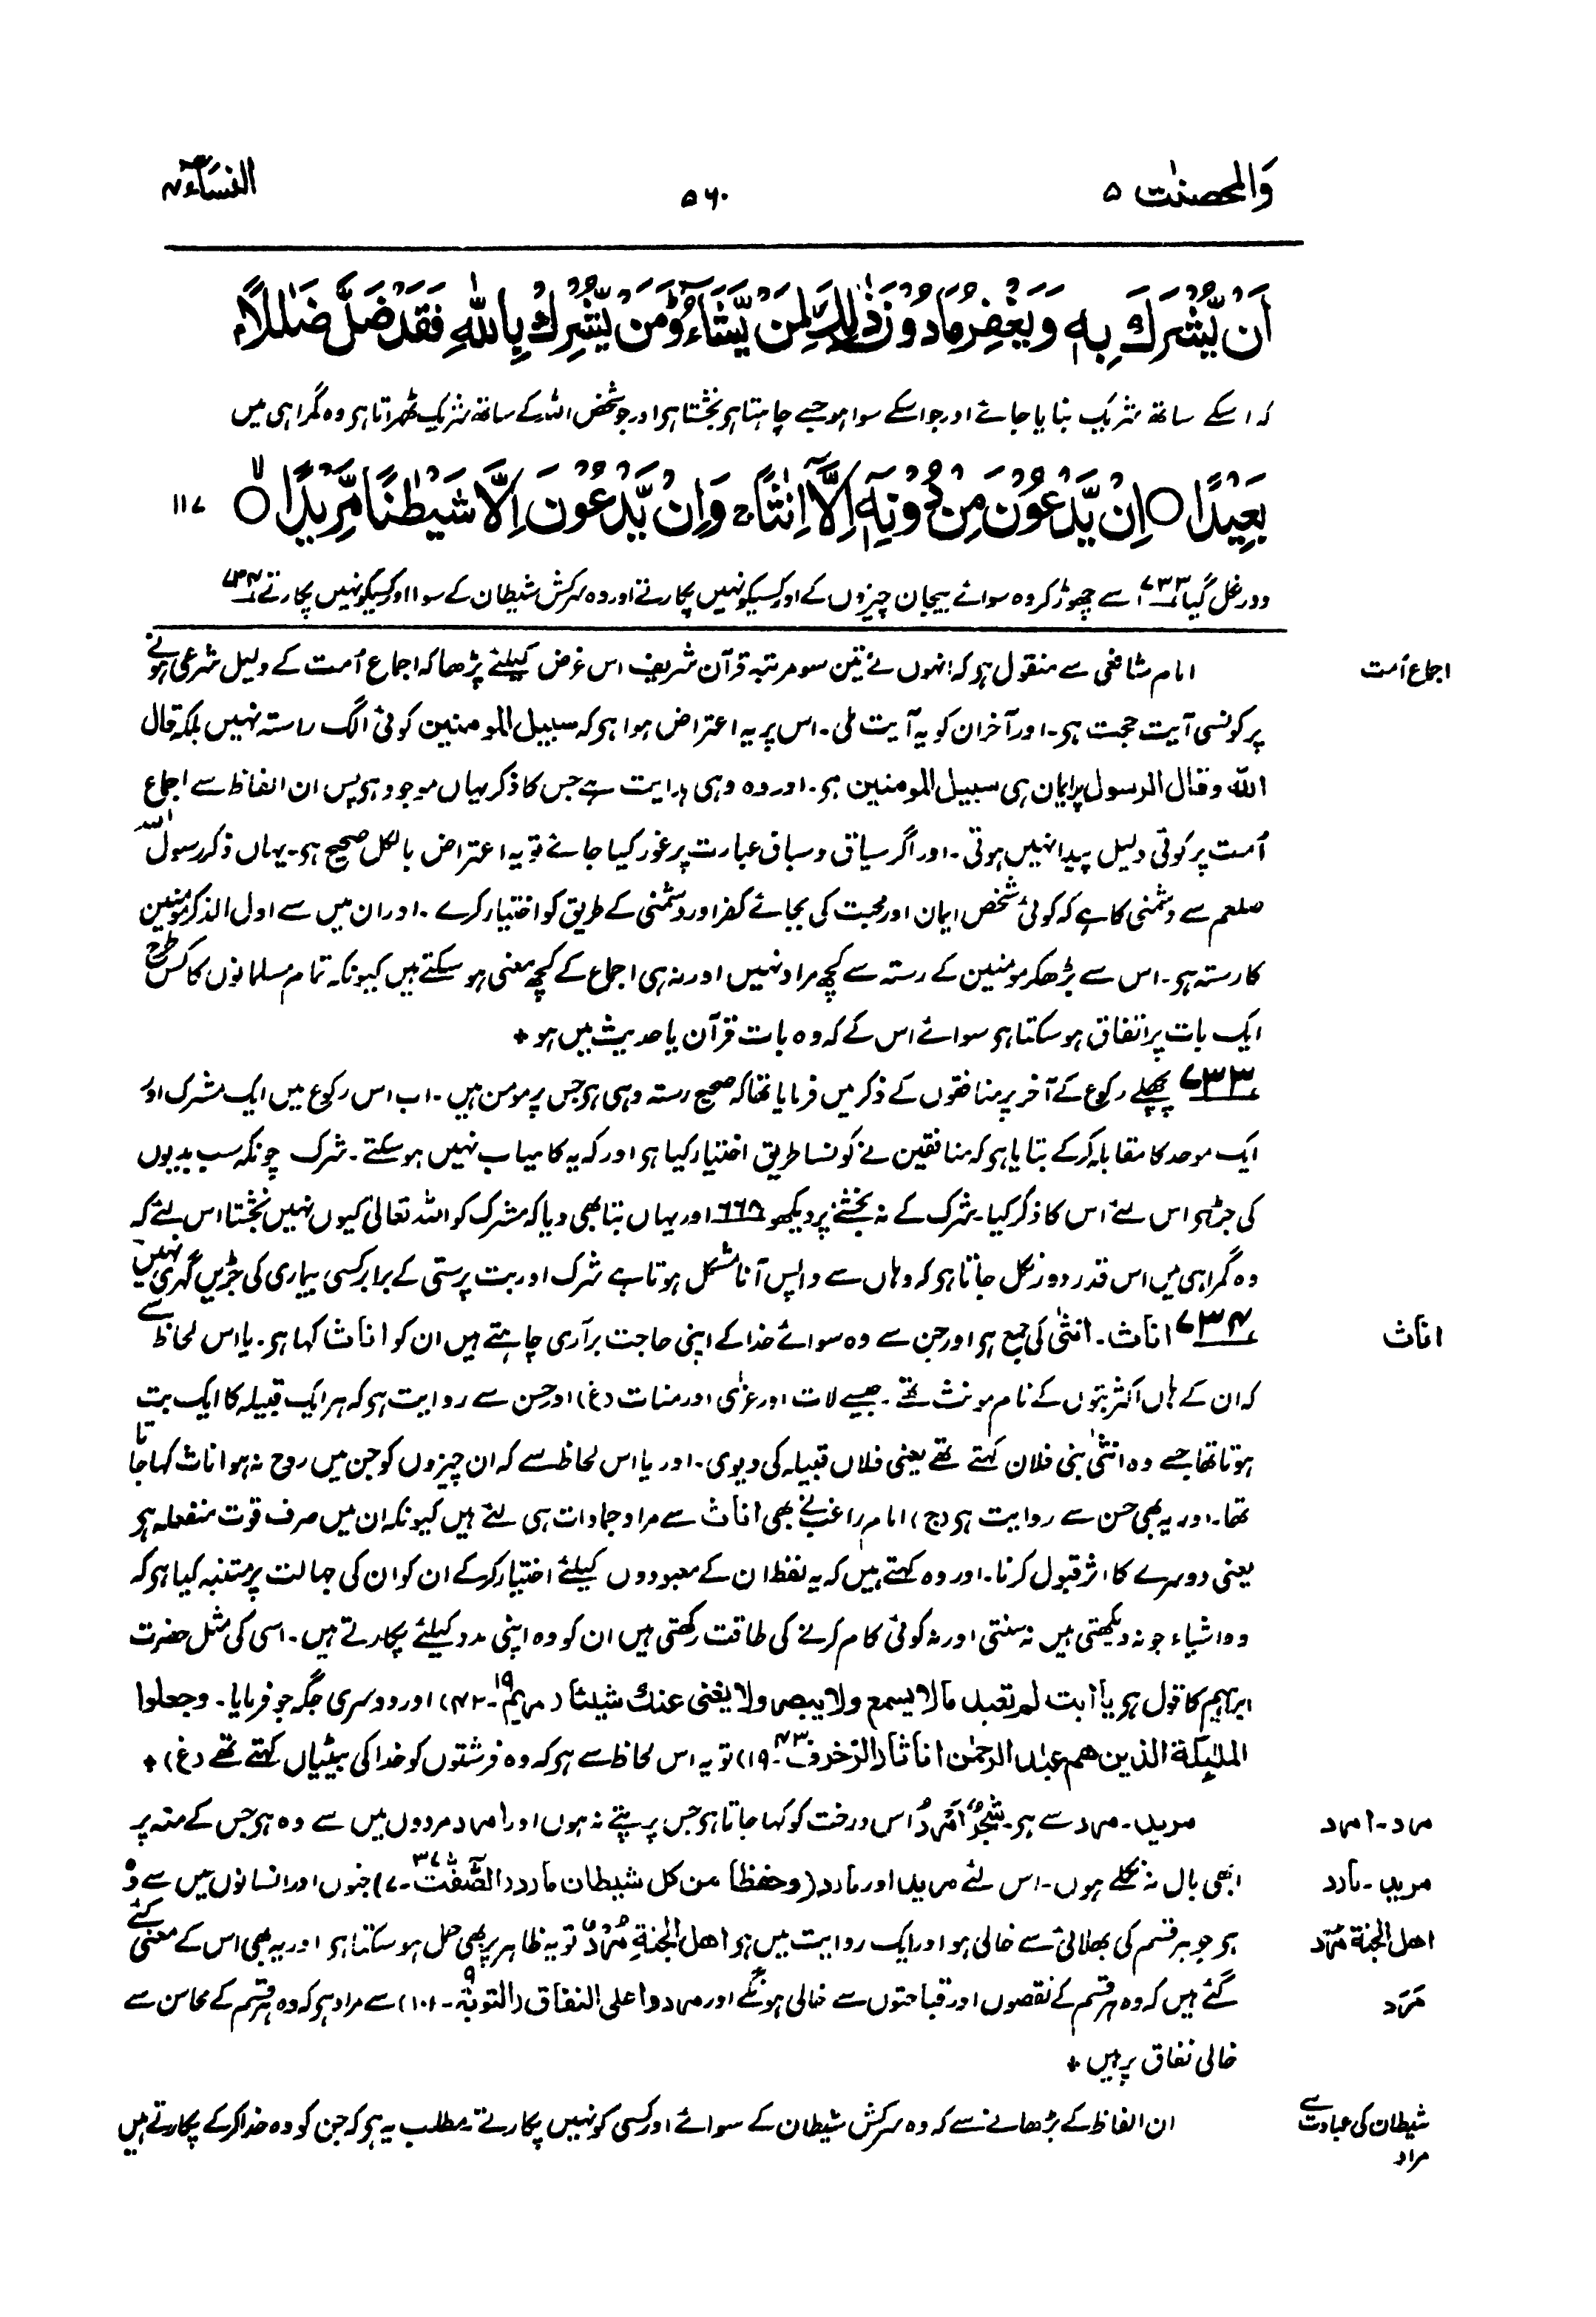 والمحصنٰت ۵
۵۶۰
النساء ۴
اَنْ يُّشْرَكَ بِهٖ وَيَغْفِرُ مَا دُوْنَ ذٰلِكَ لِمَنْ يَّشَآءُ ؕ وَمَنْ يُّشْرِكْ بِاللّٰهِ فَقَدْ ضَلَّ ضَلٰلًاۢ
کہ اسکے ساتھ شریک بنایا جائے اور جو اسکے سوا ہو جسے چاہتا ہو بخشتا ہو اور جو شخص اللہ کے ساتھ شریک ٹھہراتا ہو وہ گمراہی میں
بَعِيْدًا ○ اِنْ يَّدْعُوْنَ مِنْ دُوْنِهٖٓ اِلَّآ اِنٰثًا ۚ وَاِنْ يَّدْعُوْنَ اِلَّا شَيْطٰنًا مَّرِيْدًا ○ۙ
۱۱۷
دور نکل گیا ۷۳۳ اسے چھوڑ کر وہ سوائے بیجان چیزوں کے اور کسیکو نہیں پکارتے اور وہ سرکش شیطان کے سوا اور کسیکو نہیں پکارتے ۷۳۴
اجماع اُمت
امام شافعی سے منقول ہو کہ انہوں نے تین سو مرتبہ قرآن شریف اس غرض کیلئے پڑھا کہ اجماع اُمت کے دلیل شرعی ہونے
پر کونسی آیت حجت ہو۔ اور آخر ان کو یہ آیت ملی۔ اس پر یہ اعتراض ہوا ہو کہ سبیل المومنین کوئی الگ راستہ نہیں بلکہ قال
اللہ وقال الرسول پر ایمان ہی سبیل المومنین ہو۔ اور وہ وہی ہدایت ہے جس کا ذکر یہاں موجود ہو پس ان الفاظ سے اجماع
اُمت پر کوئی دلیل پیدا نہیں ہوتی۔ اور اگر سیاق و سباق عبارت پر غور کیا جائے تو یہ اعتراض بالکل صحیح ہو۔ یہاں ذکر رسول اللہ
صلعم سے دشمنی کا ہے کہ کوئی شخص ایمان اور محبت کی بجائے کفر اور دشمنی کے طریق کو اختیار کرے۔ اور ان میں سے اول الذکر مومنین
کا رستہ ہو۔ اس سے بڑھکر مومنین کے رستہ سے کچھ مراد نہیں اور نہ ہی اجماع کے کچھ معنی ہو سکتے ہیں کیونکہ تمام مسلمانوں کا کس طرح
ایک بات پر اتفاق ہو سکتا ہو سوائے اس کے کہ وہ بات قرآن یا حدیث میں ہو +
۷۳۳ پچھلے رکوع کے آخر پر منافقوں کے ذکر میں فرمایا تھا کہ صحیح رستہ وہی ہو جس پر مومن ہیں۔ اب اس رکوع میں ایک مشرک اور
ایک موحد کا مقابلہ کرکے بتایا ہو کہ منافقین نے کونسا طریق اختیار کیا ہو اور کہ یہ کامیاب نہیں ہو سکتے۔ شرک چونکہ سب بدیوں
کی جڑ ہو اس لئے اس کا ذکر کیا۔ شرک کے نہ بخشنے پر دیکھو ۶۶۵ اور یہاں بتا بھی دیا کہ مشرک کو اللہ تعالیٰ کیوں نہیں بخشتا اس لئے کہ
وہ گمراہی میں اس قدر دور نکل جاتا ہو کہ وہاں سے واپس آنا مشکل ہوتا ہے شرک اور بت پرستی کے برابر کسی بیماری کی جڑیں گہری نہیں
اناث
۷۳۴ اناث۔ انثیٰ کی جمع ہو اور جن سے وہ سوائے خدا کے اپنی حاجت برآری چاہتے ہیں ان کو اناث کہا ہو۔ یا اس لحاظ سے
کہ ان کے ہاں اکثر بتوں کے نام مونث تھے۔ جیسے لات اور عزٰی اور منات (غ) اور حسن سے روایت ہو کہ ہر ایک قبیلہ کا ایک بت
ہوتا تھا جسے وہ انثیٰ بنی فلان کہتے تھے یعنی فلاں قبیلہ کی دیوی۔ اور یا اس لحاظ سے کہ ان چیزوں کو جن میں روح نہ ہو اناث کہا جاتا
تھا۔ اور یہ بھی حسن سے روایت ہو (ج) امام راغب نے بھی اناث سے مراد جمادات ہی لئے ہیں کیونکہ ان میں صرف قوت منفعلہ ہو
یعنی دوسرے کا اثر قبول کرنا۔ اور وہ کہتے ہیں کہ یہ لفظ ان کے معبودوں کیلئے اختیار کرکے ان کو ان کی جہالت پر متنبہ کیا ہو کہ
وہ اشیاء جو نہ دیکھتی ہیں نہ سنتی اور نہ کوئی کام کرنے کی طاقت رکھتی ہیں ان کو وہ اپنی مدد کیلئے پکارتے ہیں۔ اسی کی مثل حضرت
ابراہیم کا قول ہو یا ابت لم تعبد مالا یسمع ولا یبصر ولا یغنی عنك شیئا (مریم ۱۹۔ ۴۲) اور دوسری جگہ جو فرمایا۔ وجعلوا
الملٰئكة الذین هم عباد الرحمٰن اناثا (الزخرف ۴۳۔ ۱۹) تو یہ اس لحاظ سے ہو کہ وہ فرشتوں کو خدا کی بیٹیاں کہتے تھے (غ) +
مرد۔ امرد
مرید۔ مرد سے ہو۔ شجرٌ امردُ اس درخت کو کہا جاتا ہو جس پر پتے نہ ہوں اور امرد مردوں میں سے وہ ہو جس کے منہ پر
مرید۔ مارد
ابھی بال نہ نکلے ہوں۔ اس لئے مرید اور مارد (وحفظا من كل شیطان مارد (الصّٰفّٰت ۳۷۔ ۷) جنوں اور انسانوں میں سے وہ
اهل الجنة مُرد
ہو جو ہر قسم کی بھلائی سے خالی ہو اور ایک روایت میں ہو اهل الجنةِ مُرْدٌ تو یہ ظاہر پر بھی حمل ہو سکتا ہو اور یہ بھی اس کے معنی کئے
مَرَد
گئے ہیں کہ وہ ہر قسم کے نقصوں اور قباحتوں سے خالی ہونگے اور مردوا علی النفاق (التوبة ۹۔ ۱۰۱) سے مراد ہو کہ وہ ہر قسم کے محاسن سے
خالی نفاق پر ہیں +
شیطان کی عبادت سے مراد
ان الفاظ کے بڑھانے سے کہ وہ سرکش شیطان کے سوائے اور کسی کو نہیں پکارتے۔ مطلب یہ ہو کہ جن کو وہ خدا کرکے پکارتے ہیں